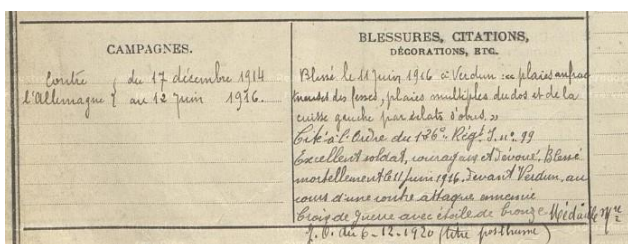 CAMPAGNES.
Contre { du 17 décembre 1914
l'Allemagne { au 12 juin 1916.
BLESSURES, CITATIONS,
DÉCORATIONS, ETC.
Blessé le 11 juin 1916 à Verdun : « plaies anfrac
tueuses des fesses, plaies multiples du dos et de la
cuisse gauche par éclats d'obus. »
Cité à l'Ordre du 126e Régt I. n° 99
Excellent soldat, courageux et dévoué. Blessé
mortellement le 11 juin 1916. Devant Verdun, au
cours d'une contre attaque ennemie
Croix de Guerre avec étoile de bronze Médaille Mre
J. O. du 6-12-1920 (titre posthume)